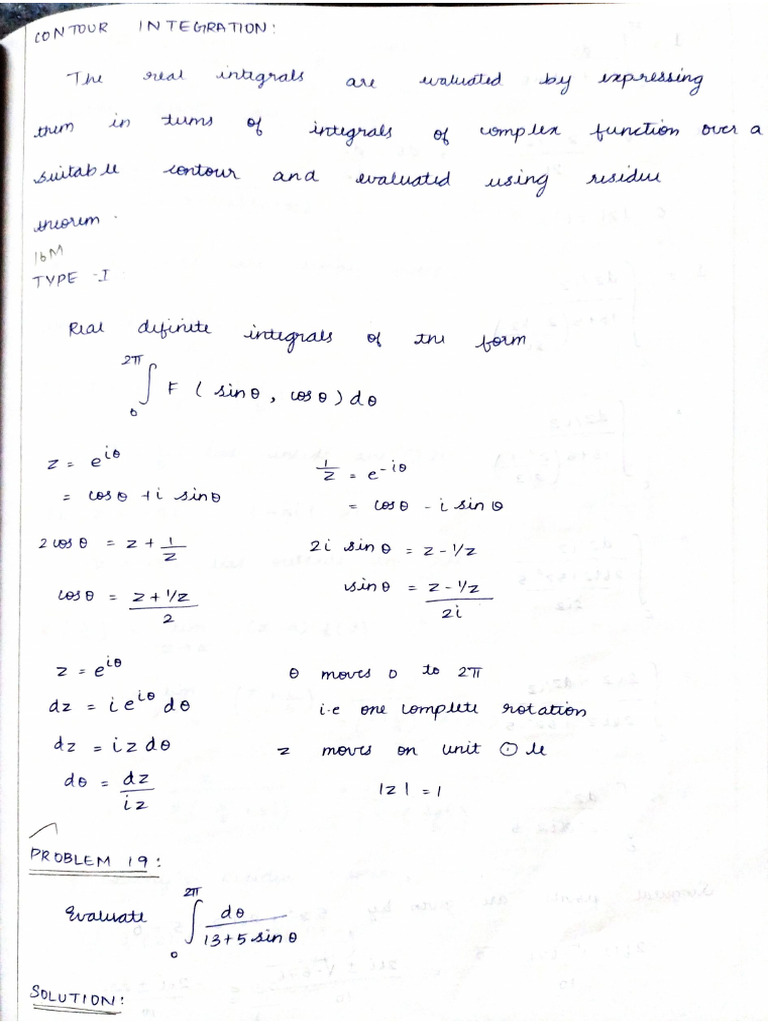 CONTOUR INTEGRATION:
The real integrals are evaluated by expressing
them in tums of integrals of complex function over a
suitable contour and evaluated using residue
theorem.
16M
TYPE -I :
Real definite integrals of the form
2π
∫ F ( sinθ , cosθ ) dθ
0
z = e^{iθ} 1/z = e^{-iθ}
= cosθ + i sinθ = cosθ - i sinθ
2cosθ = z + 1/z 2i sinθ = z - 1/z
cosθ = (z + 1/z)/2 sinθ = (z - 1/z)/2i
z = e^{iθ} θ moves 0 to 2π
dz = i e^{iθ} dθ i.e one complete rotation
dz = i z dθ z moves on unit ⊙ le
dθ = dz/iz |z| = 1
PROBLEM 19:
Evaluate ∫_0^{2π} dθ/(13+5 sinθ)
SOLUTION: